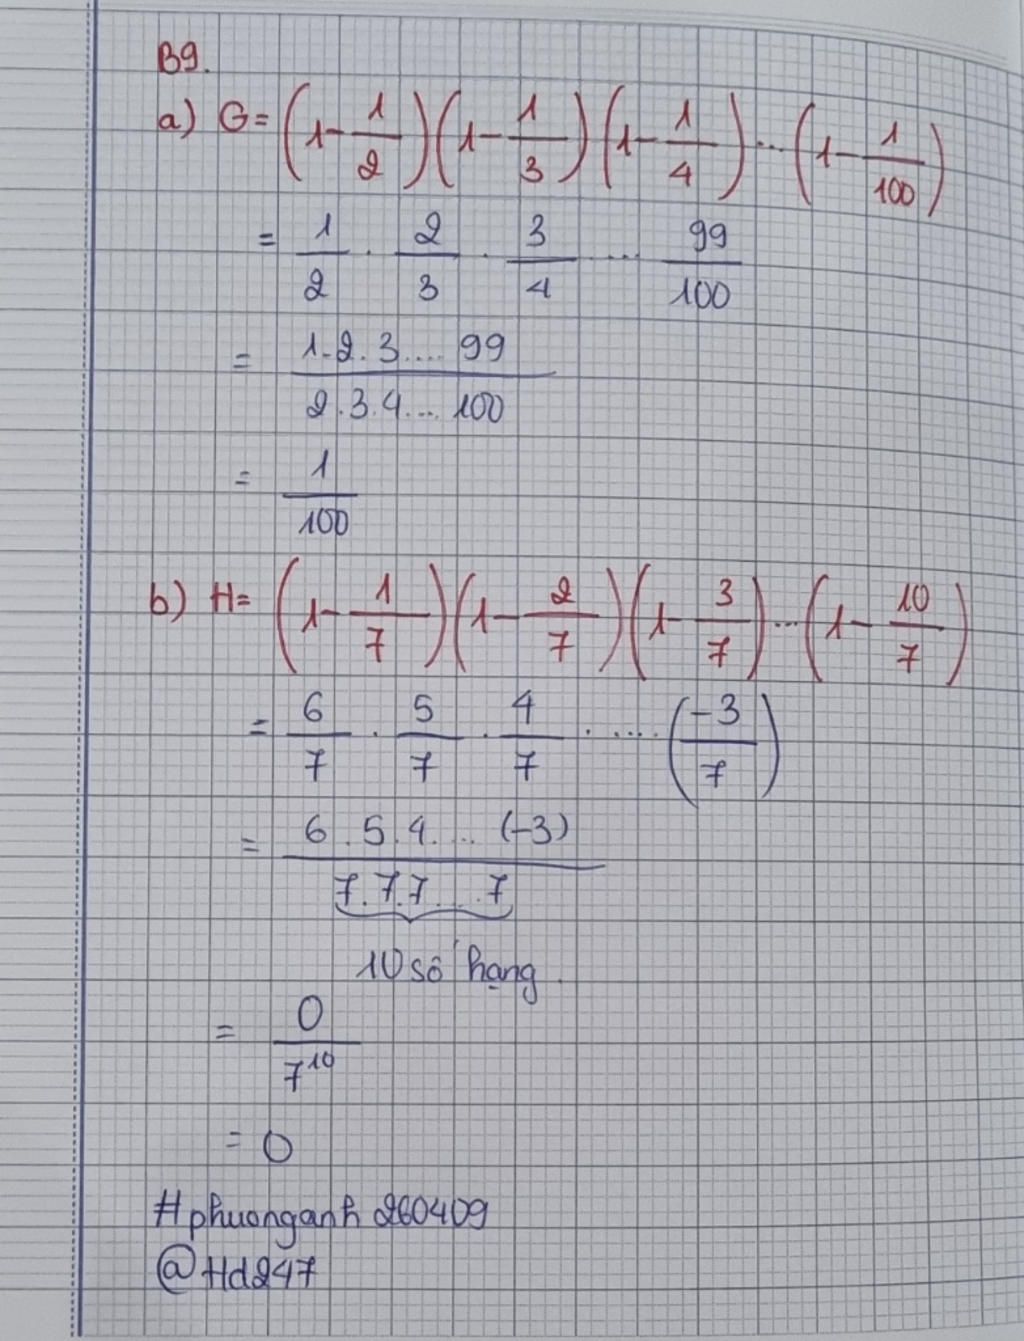 B9.
a) G = (1 - 1/2)(1 - 1/3)(1 - 1/4)...(1 - 1/100)
= 1/2 . 2/3 . 3/4 .... 99/100
= 1.2.3.... 99 / 2.3.4... 100
= 1/100
b) H = (1 - 1/7)(1 - 2/7)(1 - 3/7)...(1 - 10/7)
= 6/7 . 5/7 . 4/7 . .... (-3/7)
= 6.5.4.... (-3) / 7.7.7....7
10 số hạng.
= 0/7^10
= 0
#phuonganh260409
@Hd247